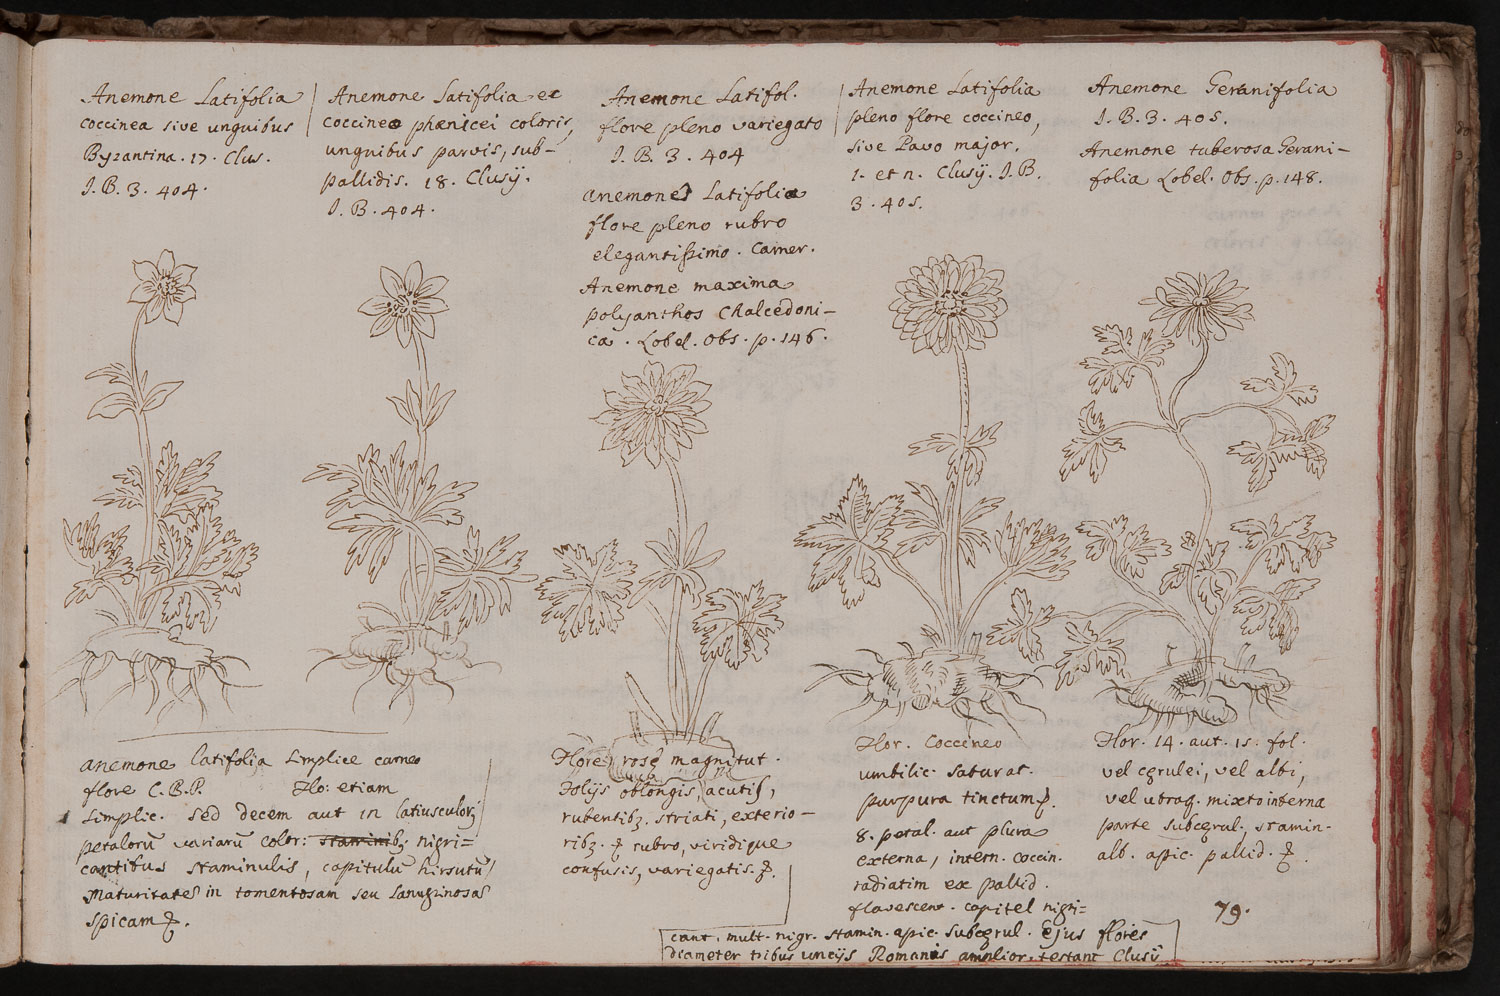 Anemone Latifolia
coccinea sive unguibus
Byzantina. 17. Clus.
I. B. 3. 404.
Anemone Latifolia ex
coccineo phænicei coloris,
unguibus parvis, sub-
pallidis. 18. Clusij.
I. B. 404.
Anemone Latifol.
flore pleno variegato
I. B. 3. 404
anemone Latifolia
flore pleno rubro
elegantissimo. Camer.
Anemone maxima
polyanthos Chalcedoni-
ca. Lobel. Obs. p. 146.
Anemone Latifolia
pleno flore coccineo,
sive Pavo major.
1. et n. Clusij. I. B.
3. 405.
Anemone Geranifolia
I. B. 3. 405.
Anemone tuberosa Gerani-
folia Lobel. Obs. p. 148.
anemone latifolia simplice carneo
flore C.B.P. Flo: etiam
simplic. sed decem aut in latiusculorʒ
petalorū variarū color: staminibʒ nigri=
cantibus staminulis, capitulū hirsutū
Maturitate in tomentosam seu lanuginosā
spicam
Flore rosę magnitut.
Folijs oblongis, acutis,
rubentibʒ. striati, exterio-
ribʒ. rubro, viridique
confusis, variegatis.
Flor. Coccineo
umbilic. saturat.
purpura tinctum
8. petal. aut plura
externa, intern. coccin.
radiatim ex pallid.
flavescent. capitel nigri=
cant. mult. nigr. stamin. apic. subcęrul. Ejus flores
diameter tribus uncijs Romanis amplior. testant Clusij
Flor. 14. aut. 15. fol.
vel cęrulei, vel albi,
vel utraq. mixto interna
parte subcęrul., stamin.
alb. apic. pallid.
79.